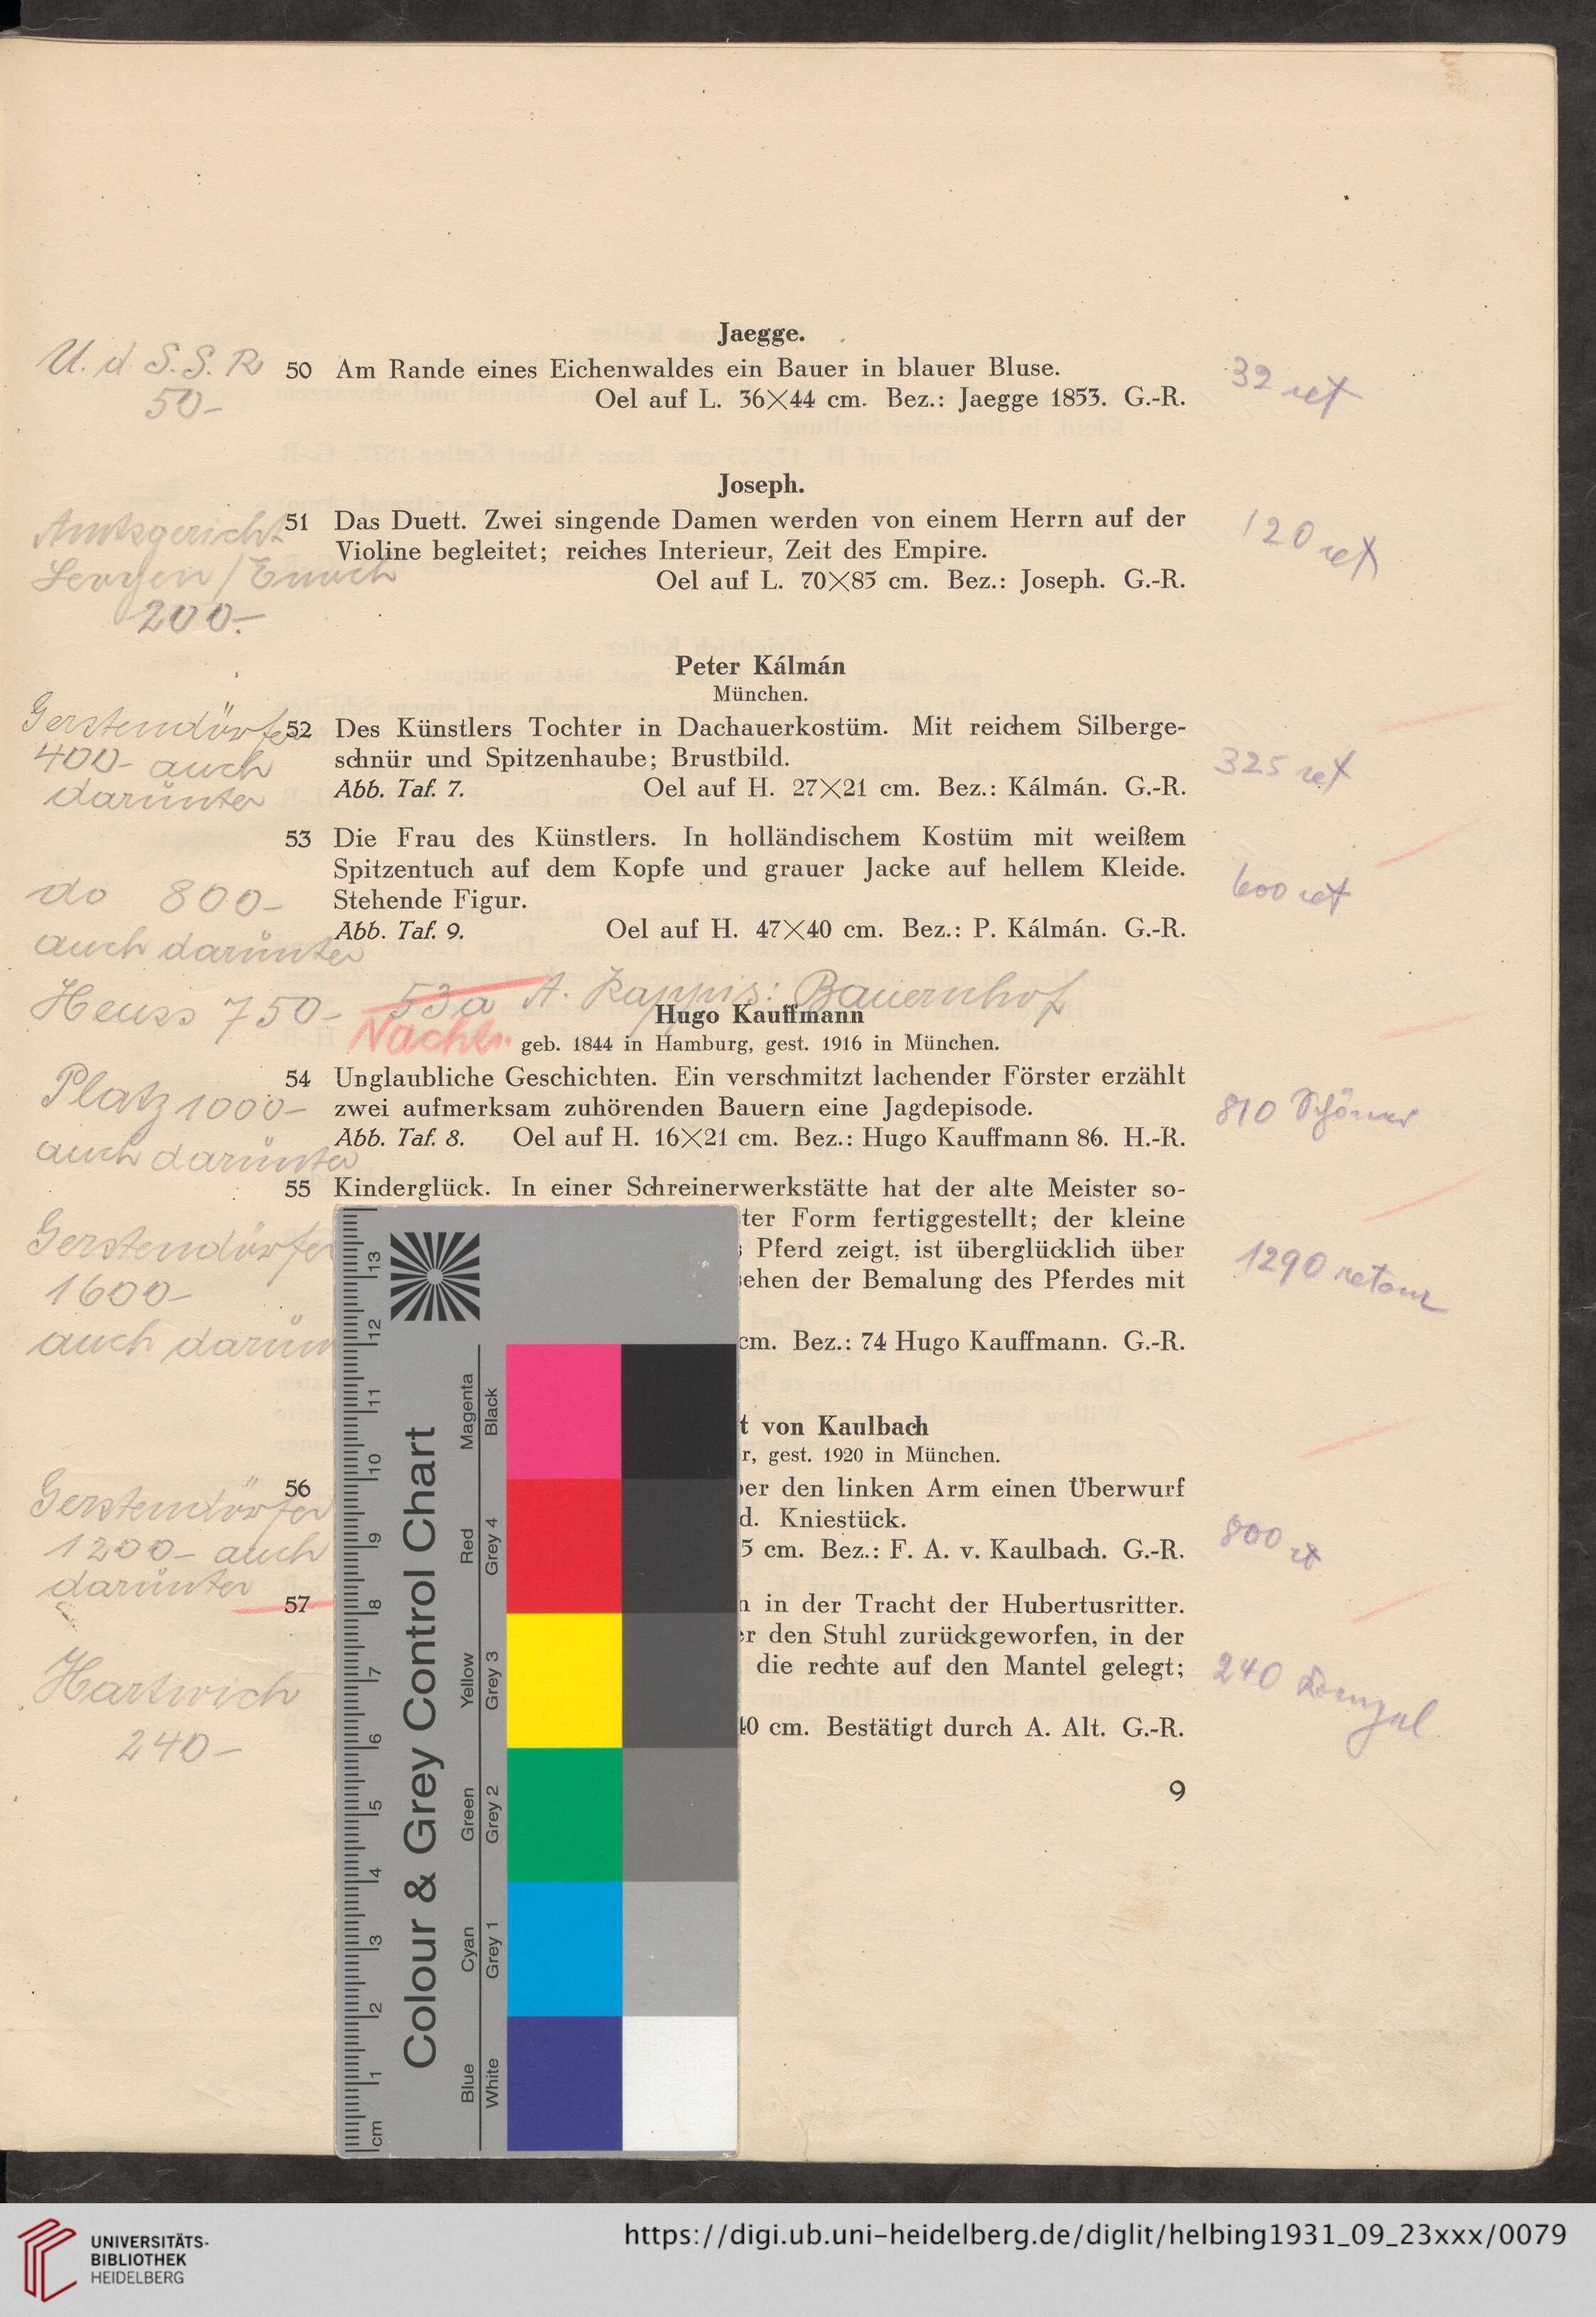 Jaegge.
U. d. S. S. R
50 Am Rande eines Eichenwaldes ein Bauer in blauer Bluse.
50-
Oel auf L. 36×44 cm. Bez.: Jaegge 1853. G.-R.
32 ret
Joseph.
Amtsgericht
51 Das Duett. Zwei singende Damen werden von einem Herrn auf der
Violine begleitet; reiches Interieur, Zeit des Empire.
Oel auf L. 70×85 cm. Bez.: Joseph. G.-R.
200.-
120 ret
Peter Kálmán
München.
Gerstendörfer
52 Des Künstlers Tochter in Dachauerkostüm. Mit reichem Silberge-
schnür und Spitzenhaube; Brustbild.
Abb. Taf. 7. Oel auf H. 27×21 cm. Bez.: Kálmán. G.-R.
400- auch
darunter
325 ret
53 Die Frau des Künstlers. In holländischem Kostüm mit weißem
Spitzentuch auf dem Kopfe und grauer Jacke auf hellem Kleide.
Stehende Figur.
Abb. Taf. 9. Oel auf H. 47×40 cm. Bez.: P. Kálmán. G.-R.
do 800-
auch darunter
600 ret
Heuss 750- 53a A. Kappis: Bauernhof
Nachtr.
Hugo Kauffmann
geb. 1844 in Hamburg, gest. 1916 in München.
54 Unglaubliche Geschichten. Ein verschmitzt lachender Förster erzählt
zwei aufmerksam zuhörenden Bauern eine Jagdepisode.
Abb. Taf. 8. Oel auf H. 16×21 cm. Bez.: Hugo Kauffmann 86. H.-R.
Platz 1000-
auch darunter
810
55 Kinderglück. In einer Schreinerwerkstätte hat der alte Meister so-
ter Form fertiggestellt; der kleine
Pferd zeigt, ist überglücklich über
ehen der Bemalung des Pferdes mit
cm. Bez.: 74 Hugo Kauffmann. G.-R.
Gerstendörfer
1600-
auch darun
1290 retour
t von Kaulbach
r, gest. 1920 in München.
56
er den linken Arm einen Überwurf
d. Kniestück.
5 cm. Bez.: F. A. v. Kaulbach. G.-R.
Gerstendörfer
1200- auch
darunter
800 rt
57
n in der Tracht der Hubertusritter.
r den Stuhl zurückgeworfen, in der
die rechte auf den Mantel gelegt;
40 cm. Bestätigt durch A. Alt. G.-R.
Hartwich
240-
240
9
Colour & Grey Control Chart
Magenta Black
Red Grey 4
Yellow Grey 3
Green Grey 2
Cyan Grey 1
Blue White
cm 1 2 3 4 5 6 7 8 9 10 11 12 13
UNIVERSITÄTS-
BIBLIOTHEK
HEIDELBERG
https://digi.ub.uni-heidelberg.de/diglit/helbing1931_09_23xxx/0079